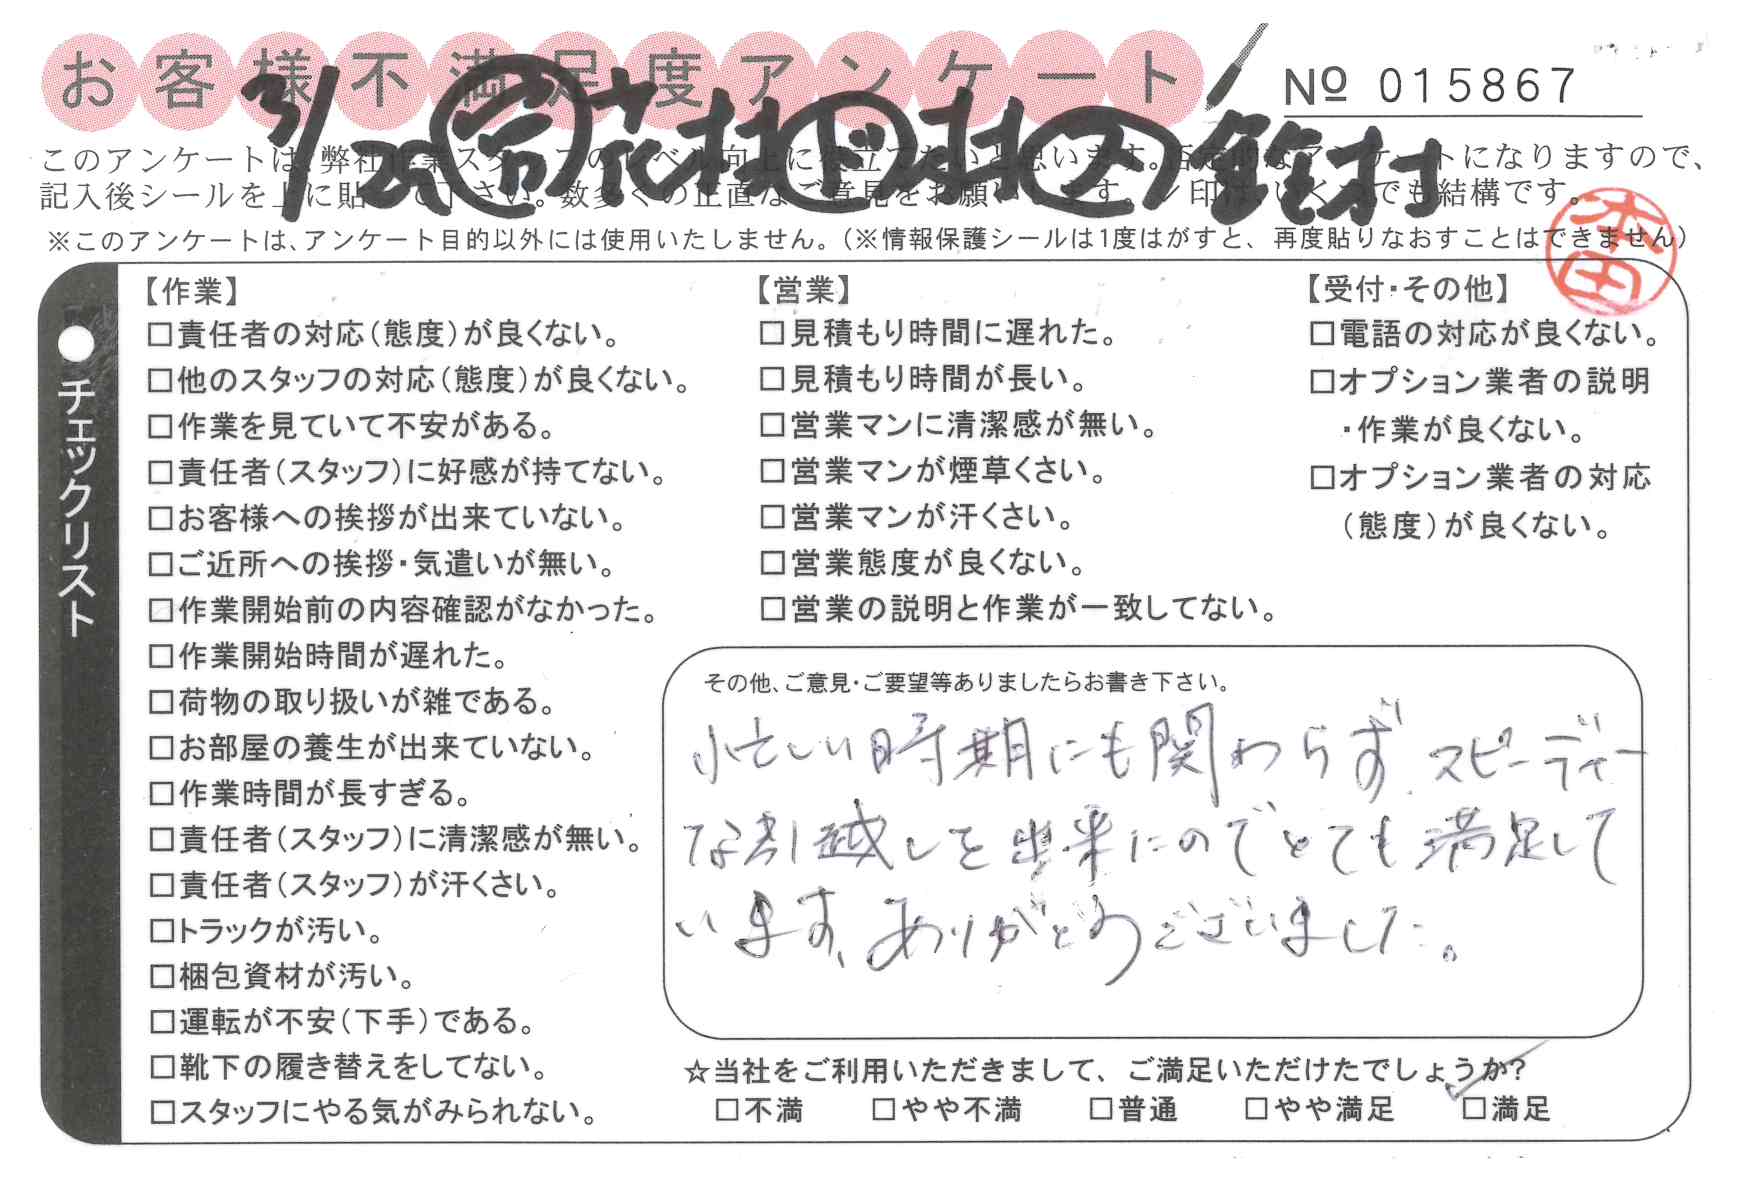 お客様不満足度アンケート
№ 015867
3/29 営 花村 ド 木村 ス 鈴村
このアンケートは、弊社作業スタッフのレベル向上に役立てたいと思います。否定的なアンケートになりますので、
記入後シールを上に貼って下さい。数多くの正直なご意見をお願いします。✓印は、いくつでも結構です。
※このアンケートは、アンケート目的以外には使用いたしません。(※情報保護シールは1度はがすと、再度貼りなおすことはできません)
本田
チェックリスト
【作業】
□責任者の対応(態度)が良くない。
□他のスタッフの対応(態度)が良くない。
□作業を見ていて不安がある。
□責任者(スタッフ)に好感が持てない。
□お客様への挨拶が出来ていない。
□ご近所への挨拶・気遣いが無い。
□作業開始前の内容確認がなかった。
□作業開始時間が遅れた。
□荷物の取り扱いが雑である。
□お部屋の養生が出来ていない。
□作業時間が長すぎる。
□責任者(スタッフ)に清潔感が無い。
□責任者(スタッフ)が汗くさい。
□トラックが汚い。
□梱包資材が汚い。
□運転が不安(下手)である。
□靴下の履き替えをしてない。
□スタッフにやる気がみられない。
【営業】
□見積もり時間に遅れた。
□見積もり時間が長い。
□営業マンに清潔感が無い。
□営業マンが煙草くさい。
□営業マンが汗くさい。
□営業態度が良くない。
□営業の説明と作業が一致してない。
【受付・その他】
□電話の対応が良くない。
□オプション業者の説明
・作業が良くない。
□オプション業者の対応
(態度)が良くない。
その他、ご意見・ご要望等ありましたらお書き下さい。
忙しい時期にも関わらず、スピーディー
な引越しを出来たのでとても満足して
います、ありがとうございました。
☆当社をご利用いただきまして、ご満足いただけたでしょうか?
□不満 □やや不満 □普通 □やや満足 □満足